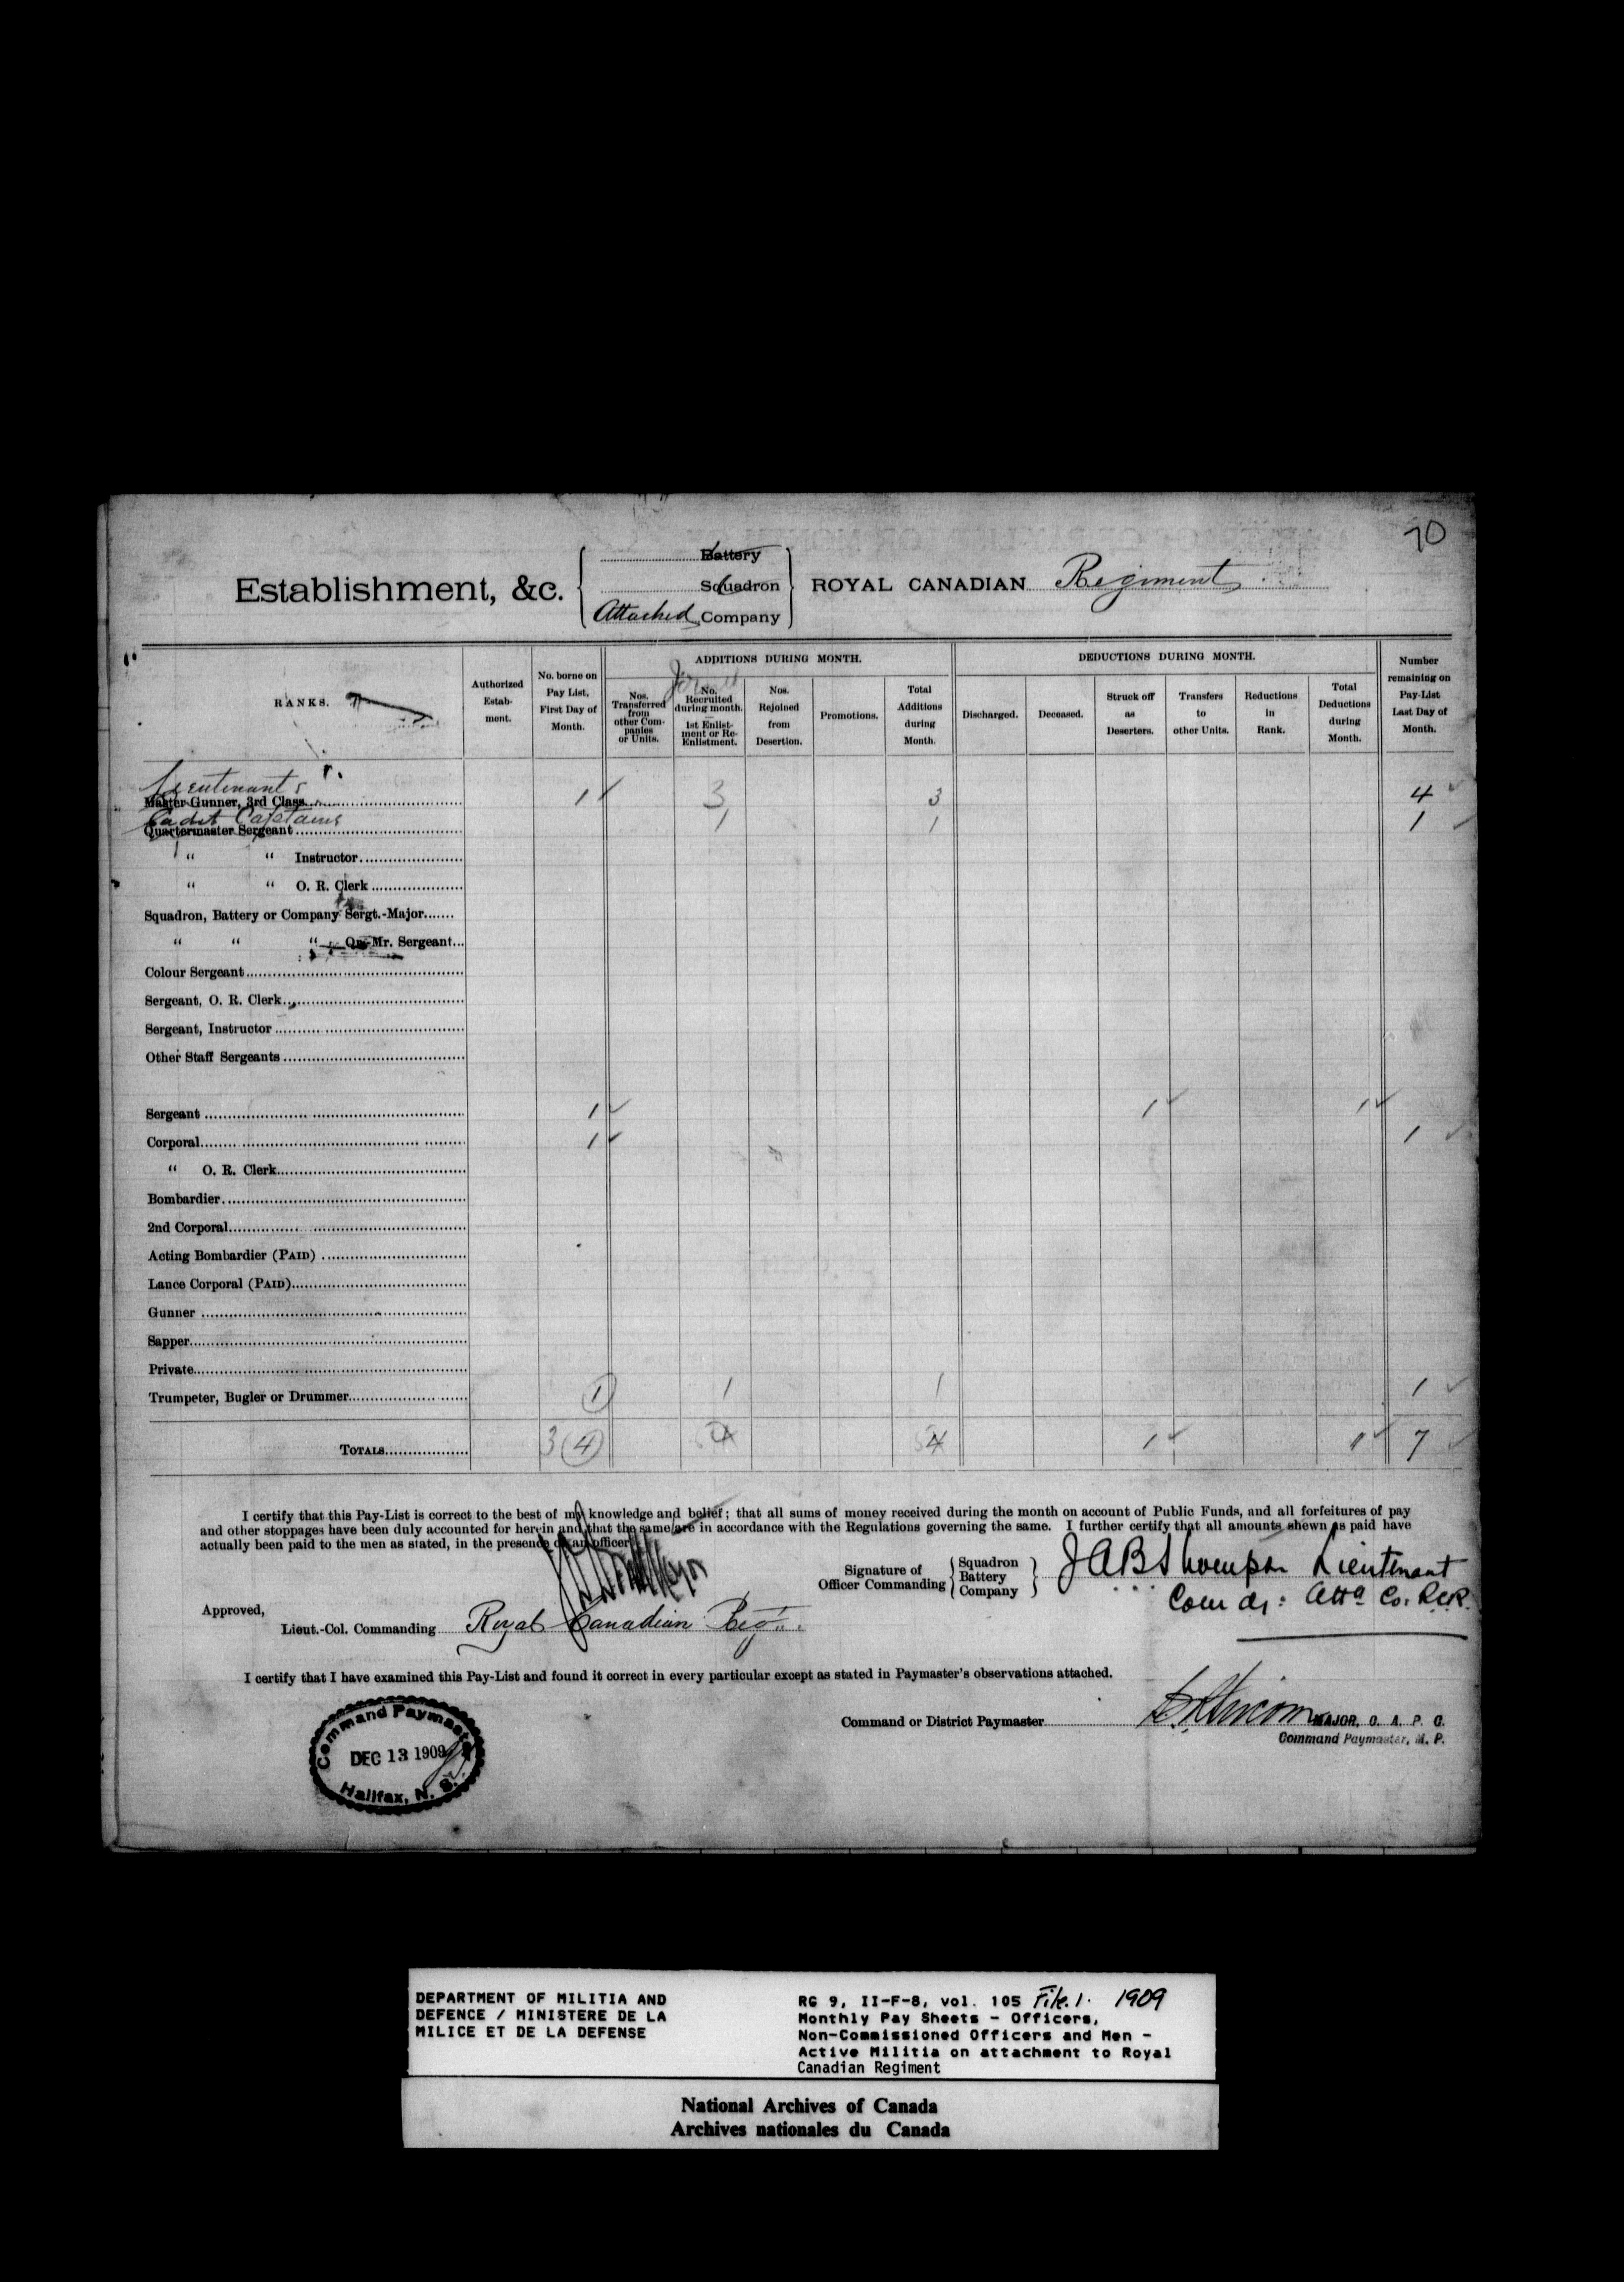 70
Battery
Squadron
Establishment, &c. Attached Company ROYAL CANADIAN Regiment
RANKS.
Authorized Establishment.
No. borne on Pay List, First Day of Month.
ADDITIONS DURING MONTH.
Nos. Transferred from other Companies or Units.
No. Recruited during month. — 1st Enlistment or Re-Enlistment.
Nos. Rejoined from Desertion.
Promotions.
Total Additions during Month.
DEDUCTIONS DURING MONTH.
Discharged.
Deceased.
Struck off as Deserters.
Transfers to other Units.
Reductions in Rank.
Total Deductions during Month.
Number remaining on Pay-List Last Day of Month.
Lieutenants 1 3 3 4
Master Gunner, 3rd Class
Cadet Captains 1 1 1
Quartermaster Sergeant
" " Instructor
" " O. R. Clerk
Squadron, Battery or Company Sergt.-Major
" " " Qr.-Mr. Sergeant
Colour Sergeant
Sergeant, O. R. Clerk
Sergeant, Instructor
Other Staff Sergeants
Sergeant 1 1 1
Corporal 1 1
" O. R. Clerk
Bombardier
2nd Corporal
Acting Bombardier (PAID)
Lance Corporal (PAID)
Gunner
Sapper
Private
Trumpeter, Bugler or Drummer 1 1 1 1
TOTALS 3 4 4 1 1 7
I certify that this Pay-List is correct to the best of my knowledge and belief; that all sums of money received during the month on account of Public Funds, and all forfeitures of pay
and other stoppages have been duly accounted for herein and that the same are in accordance with the Regulations governing the same. I further certify that all amounts shewn as paid have
actually been paid to the men as stated, in the presence of an officer
Signature of Officer Commanding Squadron Battery Company J A B Thompson Lieutenant
Comdg: Atta Co. R.C.R.
Approved,
Lieut.-Col. Commanding Royal Canadian Reg't.
I certify that I have examined this Pay-List and found it correct in every particular except as stated in Paymaster's observations attached.
Command or District Paymaster MAJOR, C. A. P. C.
Command Paymaster, M. P.
Command Paymaster
DEC 13 1909
Halifax, N. S.
DEPARTMENT OF MILITIA AND
DEFENCE / MINISTERE DE LA
MILICE ET DE LA DEFENSE
RG 9, II-F-8, vol. 105 File. 1. 1909
Monthly Pay Sheets - Officers,
Non-Commissioned Officers and Men -
Active Militia on attachment to Royal
Canadian Regiment
National Archives of Canada
Archives nationales du Canada